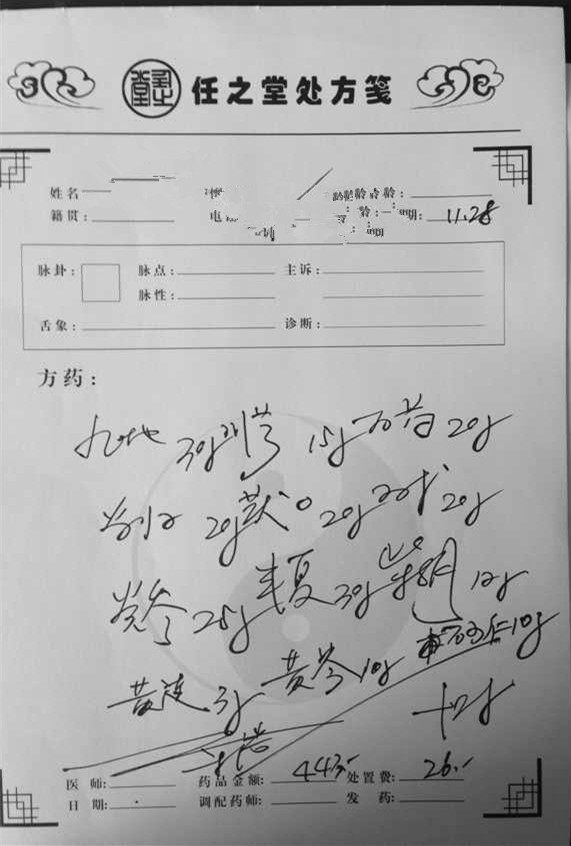 任之堂处方笺
姓名
籍贯: 电 期: 11.28
脉卦: 脉点: 主诉:
脉性:
舌象: 诊断:
方药:
九地 30g 川芎 15g 白芍 20g
当归 20g 茯 20g 白术 20g
党参 25g 半夏 30g 柴胡 12g
黄连 3g 黄芩 10g 10g
医师: 药品金额: 443.- 处置费: 26.-
日期: 调配药师: 发药: